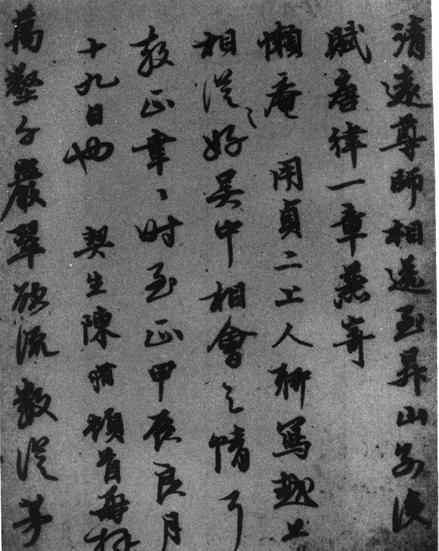 清遠尊師相送至昇山
賦唐律一章兼寄
懶庵 用貞二上人聊寫越上
相從之好吳中相會之情可
教正幸〻時至正甲辰良月
十九日也 契生陳頓首再拜
萬壑千巖翠欲流數從茅